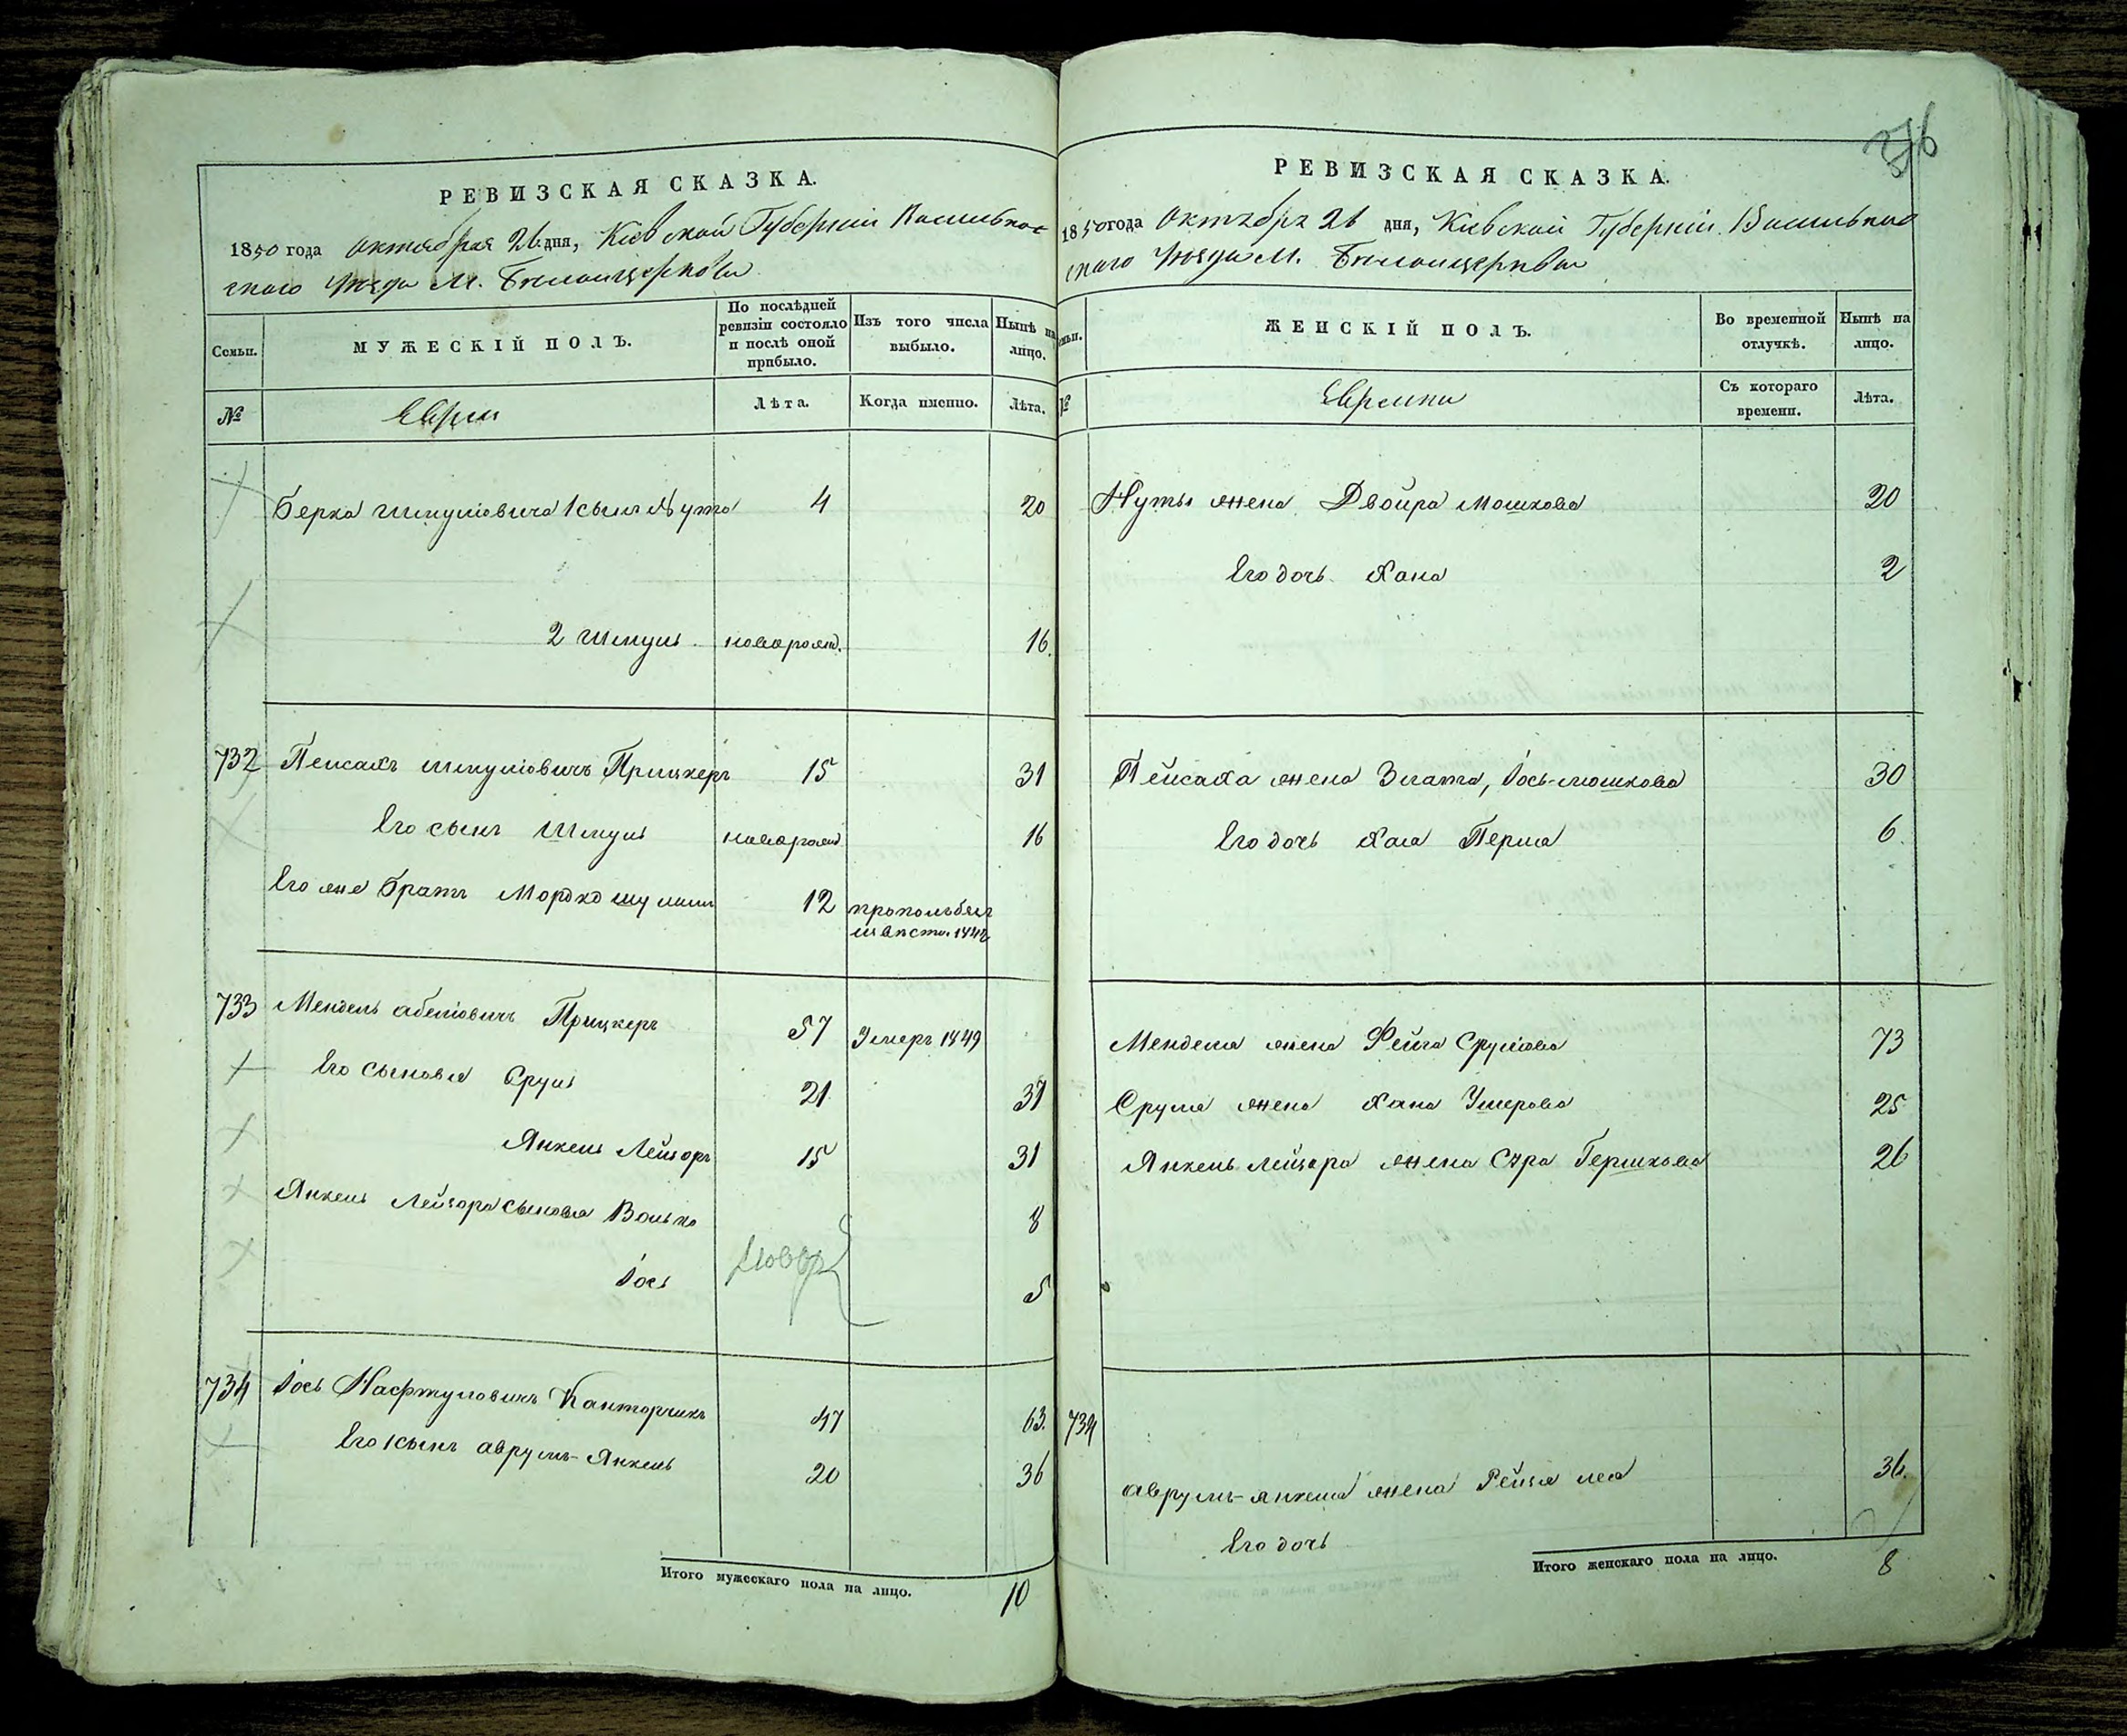 РЕВИЗСКАЯ СКАЗКА.
1850 года Октября 26 дня, Кіевской Губерніи Васильков
скаго Уезда М. Белойцеркви
Семьи. МУЖЕСКІЙ ПОЛЪ. По послѣдней ревизіи состояло и послѣ оной прибыло. Изъ того числа выбыло. Нынѣ на лицо.
№ Евреи Лѣта. Когда именно. Лѣта.
Берка Шмулiовича 1 сынъ Нута 4 20
2 Шмуль новорожд. 16.
732 Пейсахъ Шмулiовичъ Прицкеръ 15 31
Его сынъ Шмуль новорожд 16
Его же братъ Мордко 12 1842
733 Мендель Абелiовичъ Прицкеръ 57 Умеръ 1849
Его сыновья Сруль 21 37
Янкель Лейзоръ 15 31
Янкель Лейзора сыновья Волько 8
Іось новор 5
734 Іось Нафтуловичъ Канторчикъ 47 63.
Его 1 сынъ Аврумъ-Янкель 20 36
Итого мужескаго пола на лицо. 10
РЕВИЗСКАЯ СКАЗКА.
1850 года Октября 26 дня, Кіевской Губерніи Васильков
скаго Уезда М. Белойцеркви
Семьи. ЖЕНСКІЙ ПОЛЪ. Во временной отлучкѣ. Нынѣ на лицо.
№ Еврейки Съ котораго времени. Лѣта.
Нуты жена Двойра Мошкова 20
Его дочь Хана 2
Пейсаха жена Злата, Іось-Мошкова 30
Его дочь Хая Перля 6.
Менделя жена Фейга Срулiова 73
Сруля жена Хана Умерова 25
Янкель Лейзора жена Сура Гершкова 26
734
Аврумъ-Янкеля жена Рейзя Лея 36.
Его дочь
Итого женскаго пола на лицо. 8